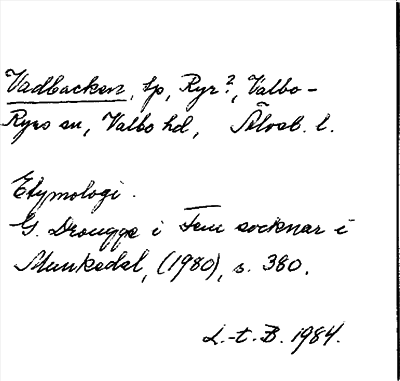 Vadbacken, tp, Ryr?, Valbo-
Ryrs sn, Valbo hd, Älvsb. l.
Etymologi.
G. Drougge i Fem socknar i
Munkedal, (1980), s. 380.
L.-t. B. 1984.